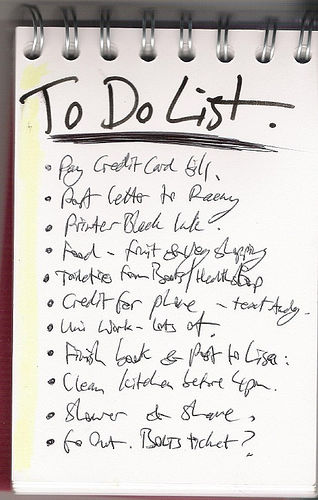 To Do List.
• Pay Credit Card bills.
• Post letter to
• Printer Black Ink.
• Food - fruit & veg shopping
• Toiletries from Boots/Health Shop
• Credit for phone - text Andy.
• Uni work - lots of.
• Finish book & Post to Lisa.
• Clean kitchen before 4pm.
• Shower & Shave.
• Go Out. ticket?